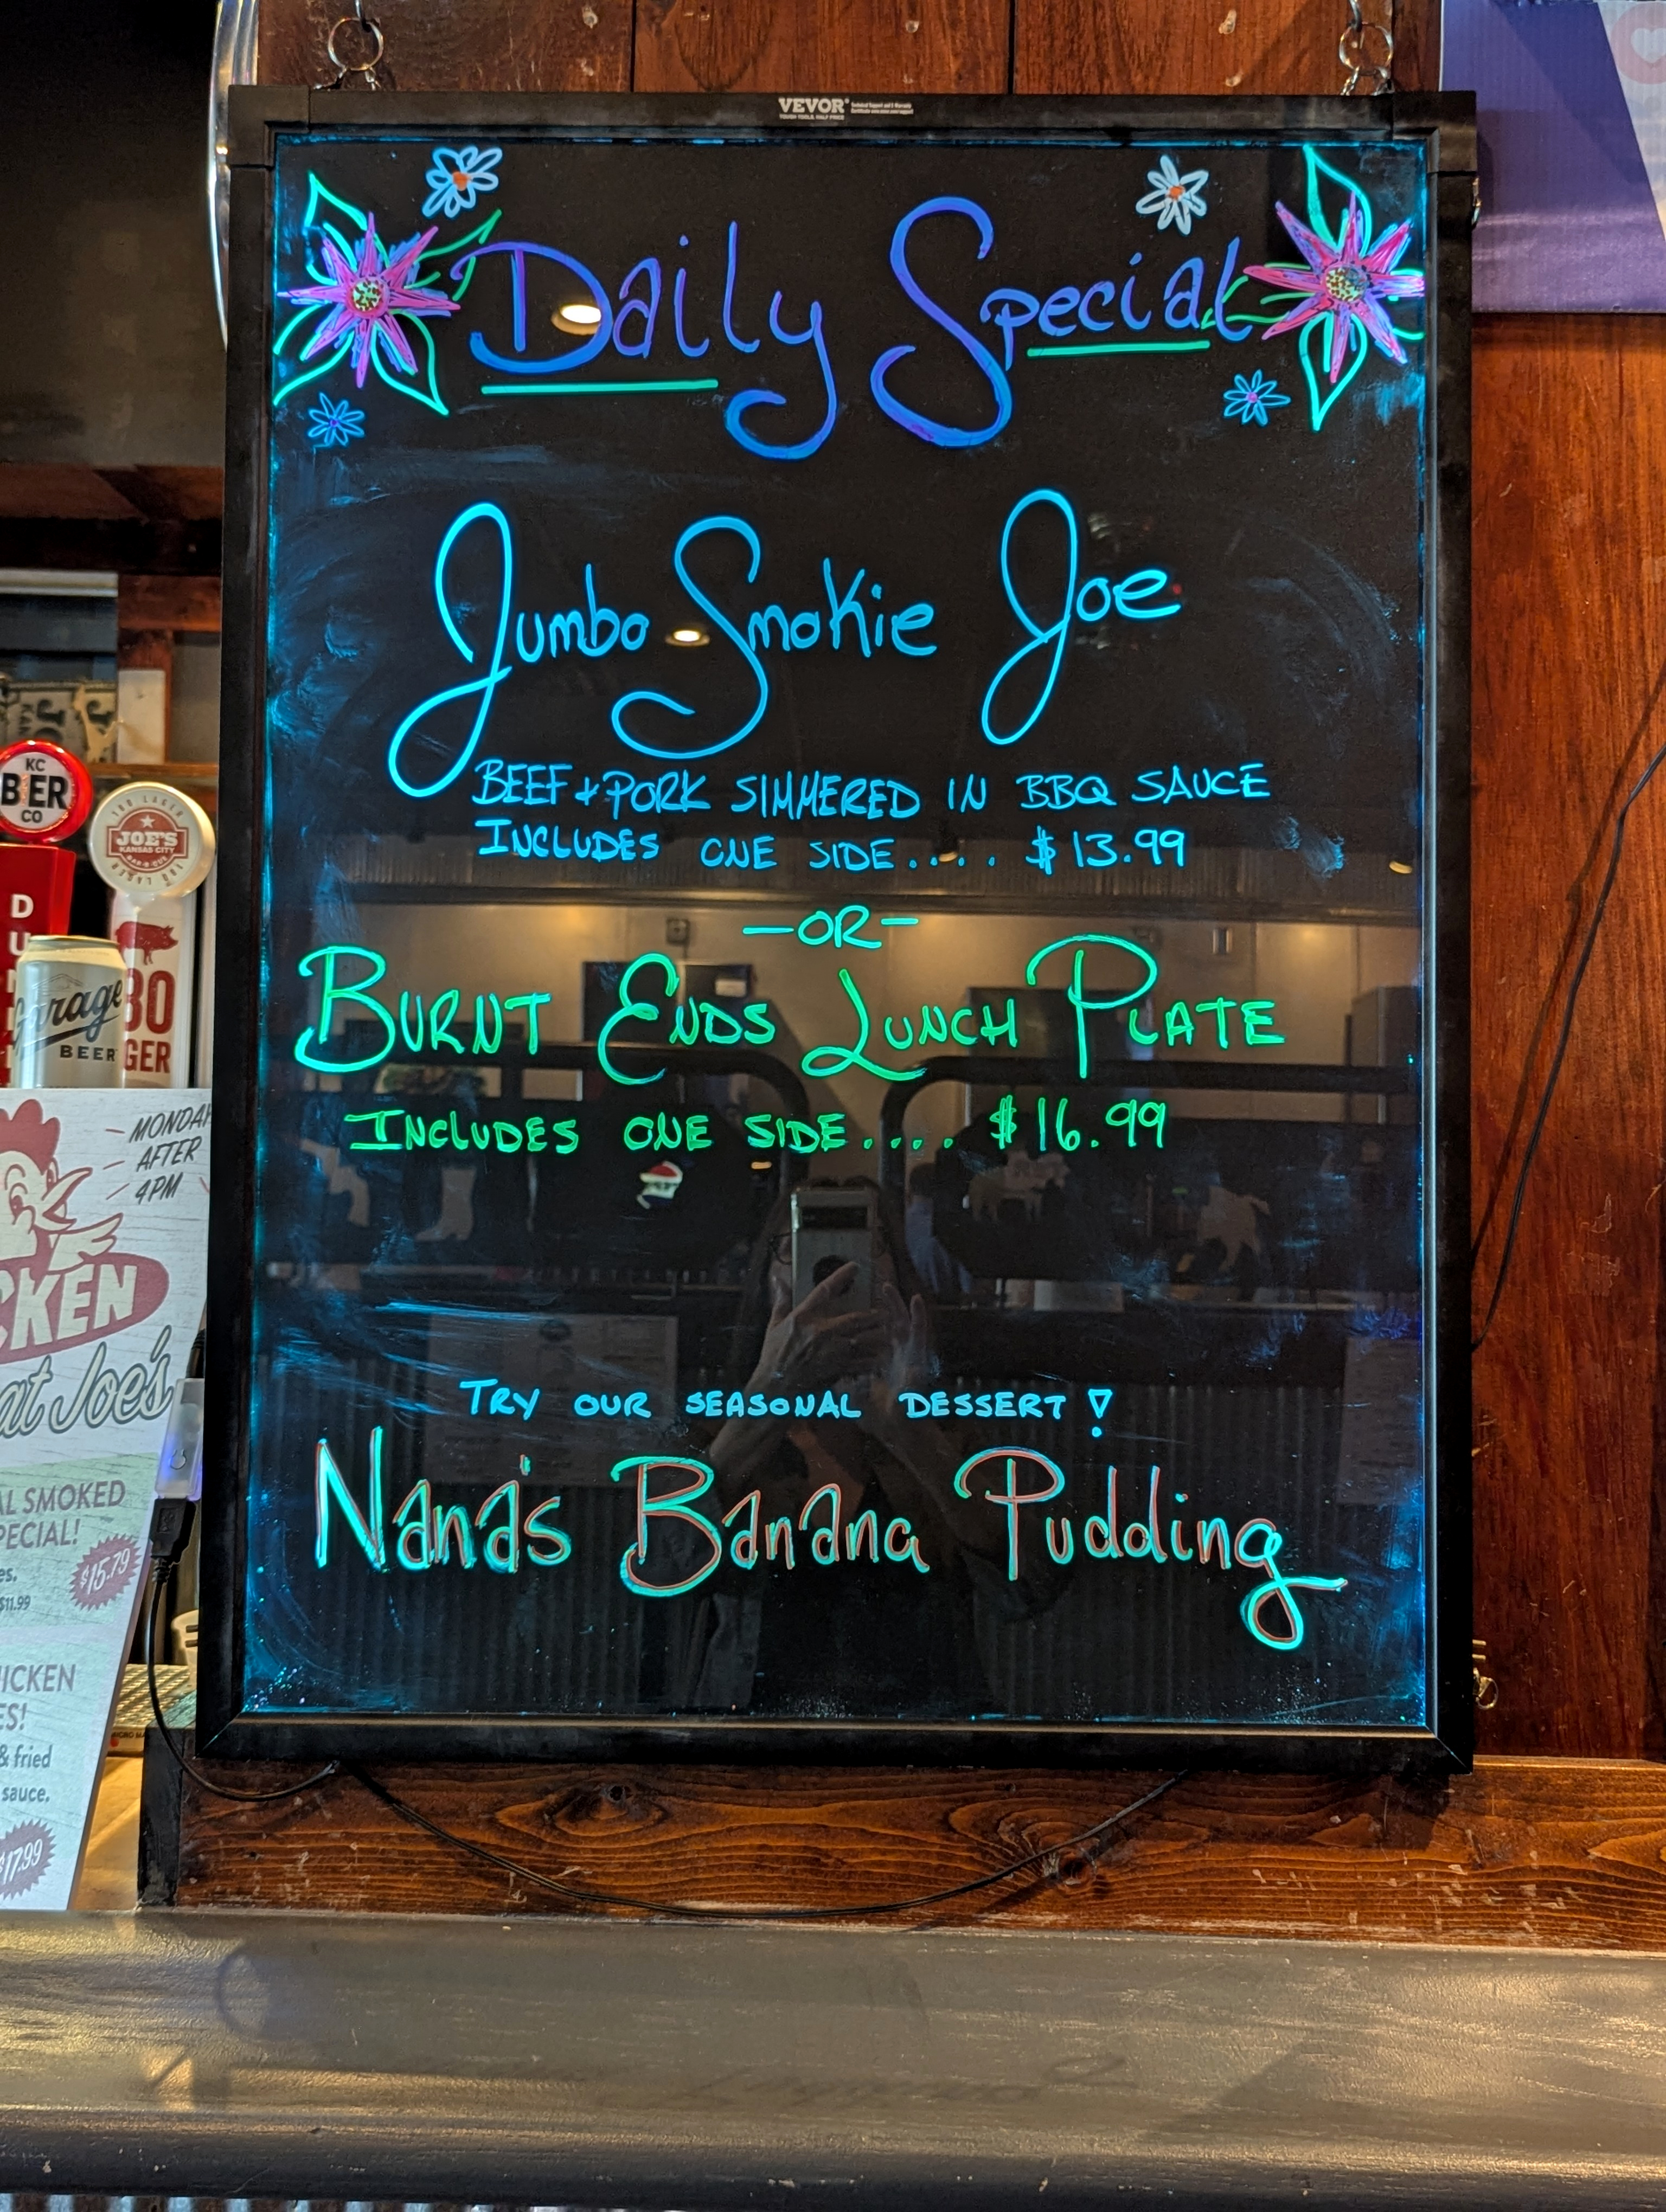 VEVOR
TOUGH TOOLS, HALF PRICE
Daily Special
Jumbo Smokie Joe
BEEF + PORK SIMMERED IN BBQ SAUCE
INCLUDES ONE SIDE.... $13.99
-OR-
BURNT ENDS LUNCH PLATE
INCLUDES ONE SIDE.... $16.99
TRY OUR SEASONAL DESSERT!
Nana's Banana Pudding
KC
BIER
CO
JOE'S
KANSAS CITY
BAR-B-QUE
D
U
Garage
BEER
BO
GER
MONDAY
AFTER
4PM
CKEN
at Joe's
AL SMOKED
PECIAL!
es.
$11.99
$15.79
ICKEN
ES!
& fried
sauce.
$17.99